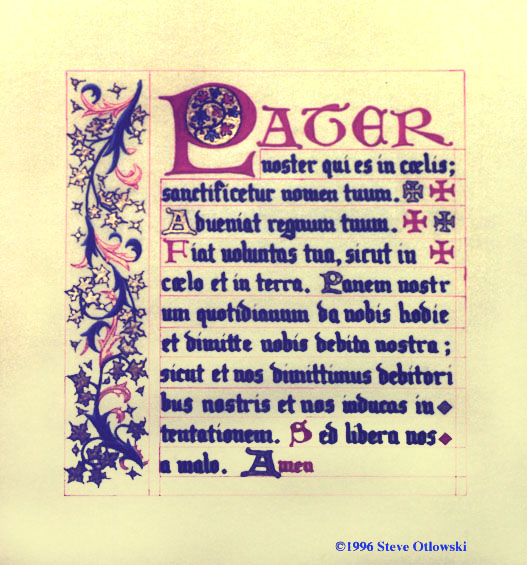 PATER
noster qui es in cœlis;
sanctificetur nomen tuum.
Adveniat regnum tuum.
Fiat voluntas tua, sicut in
cœlo et in terra. Panem nostr
um quotidianum da nobis hodie
et dimitte nobis debita nostra;
sicut et nos dimittimus debitori
bus nostris et nos inducas in
tentationem. Sed libera nos
a malo. Amen
©1996 Steve Otlowski